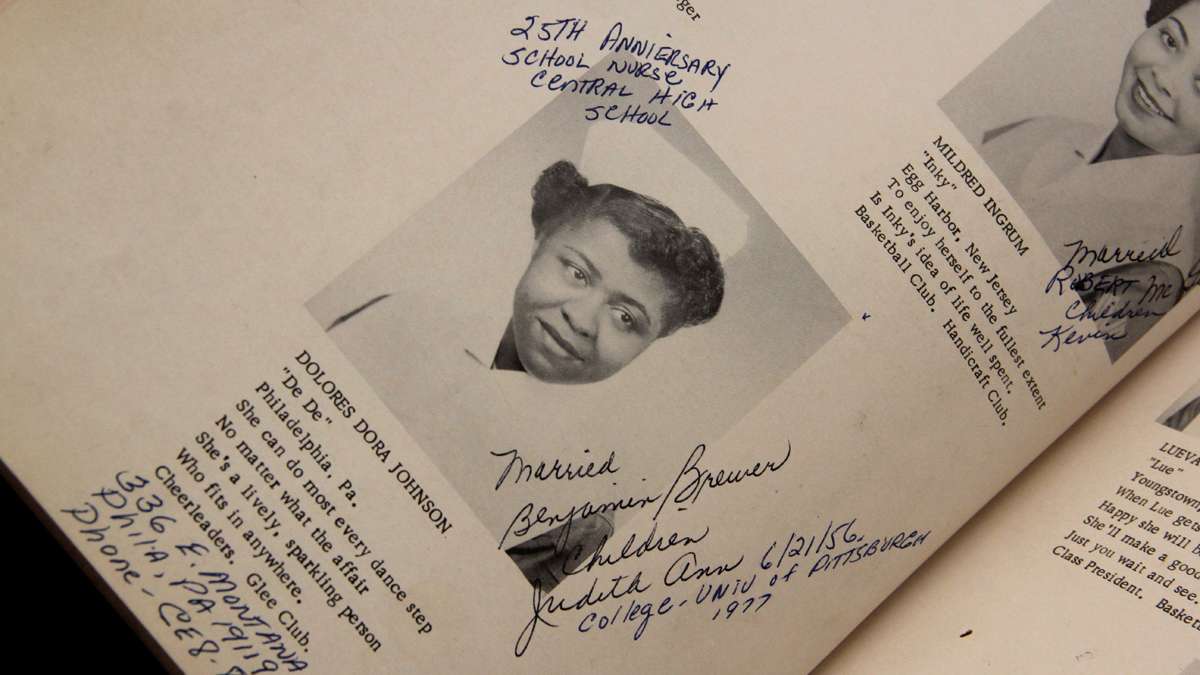 ger
25TH ANNIERSARY
SCHOOL NURSE
CENTRAL HIGH
SCHOOL
DOLORES DORA JOHNSON
"De De"
Philadelphia, Pa.
She can do most every dance step
No matter what the affair
She's a lively, sparkling person
Who fits in anywhere.
Cheerleaders. Glee Club.
336 E. MONTANA
PhilA, PA 19119
Phone - CE8-
Married
Benjamin Brewer
Children
Judith Ann 6/21/56.
College - UNIV of PITTSBURGH
1977
MILDRED INGRUM
"Inky"
Egg Harbor, New Jersey
To enjoy herself to the fullest extent
Is Inky's idea of life well spent.
Basketball Club. Handicraft Club.
Married
ROBERT Mc
Children
Kevin
LUEVA
"Lue"
Youngstown,
When Lue get
Happy she will b
She'll make a good
Just you wait and see.
Class President. Basket